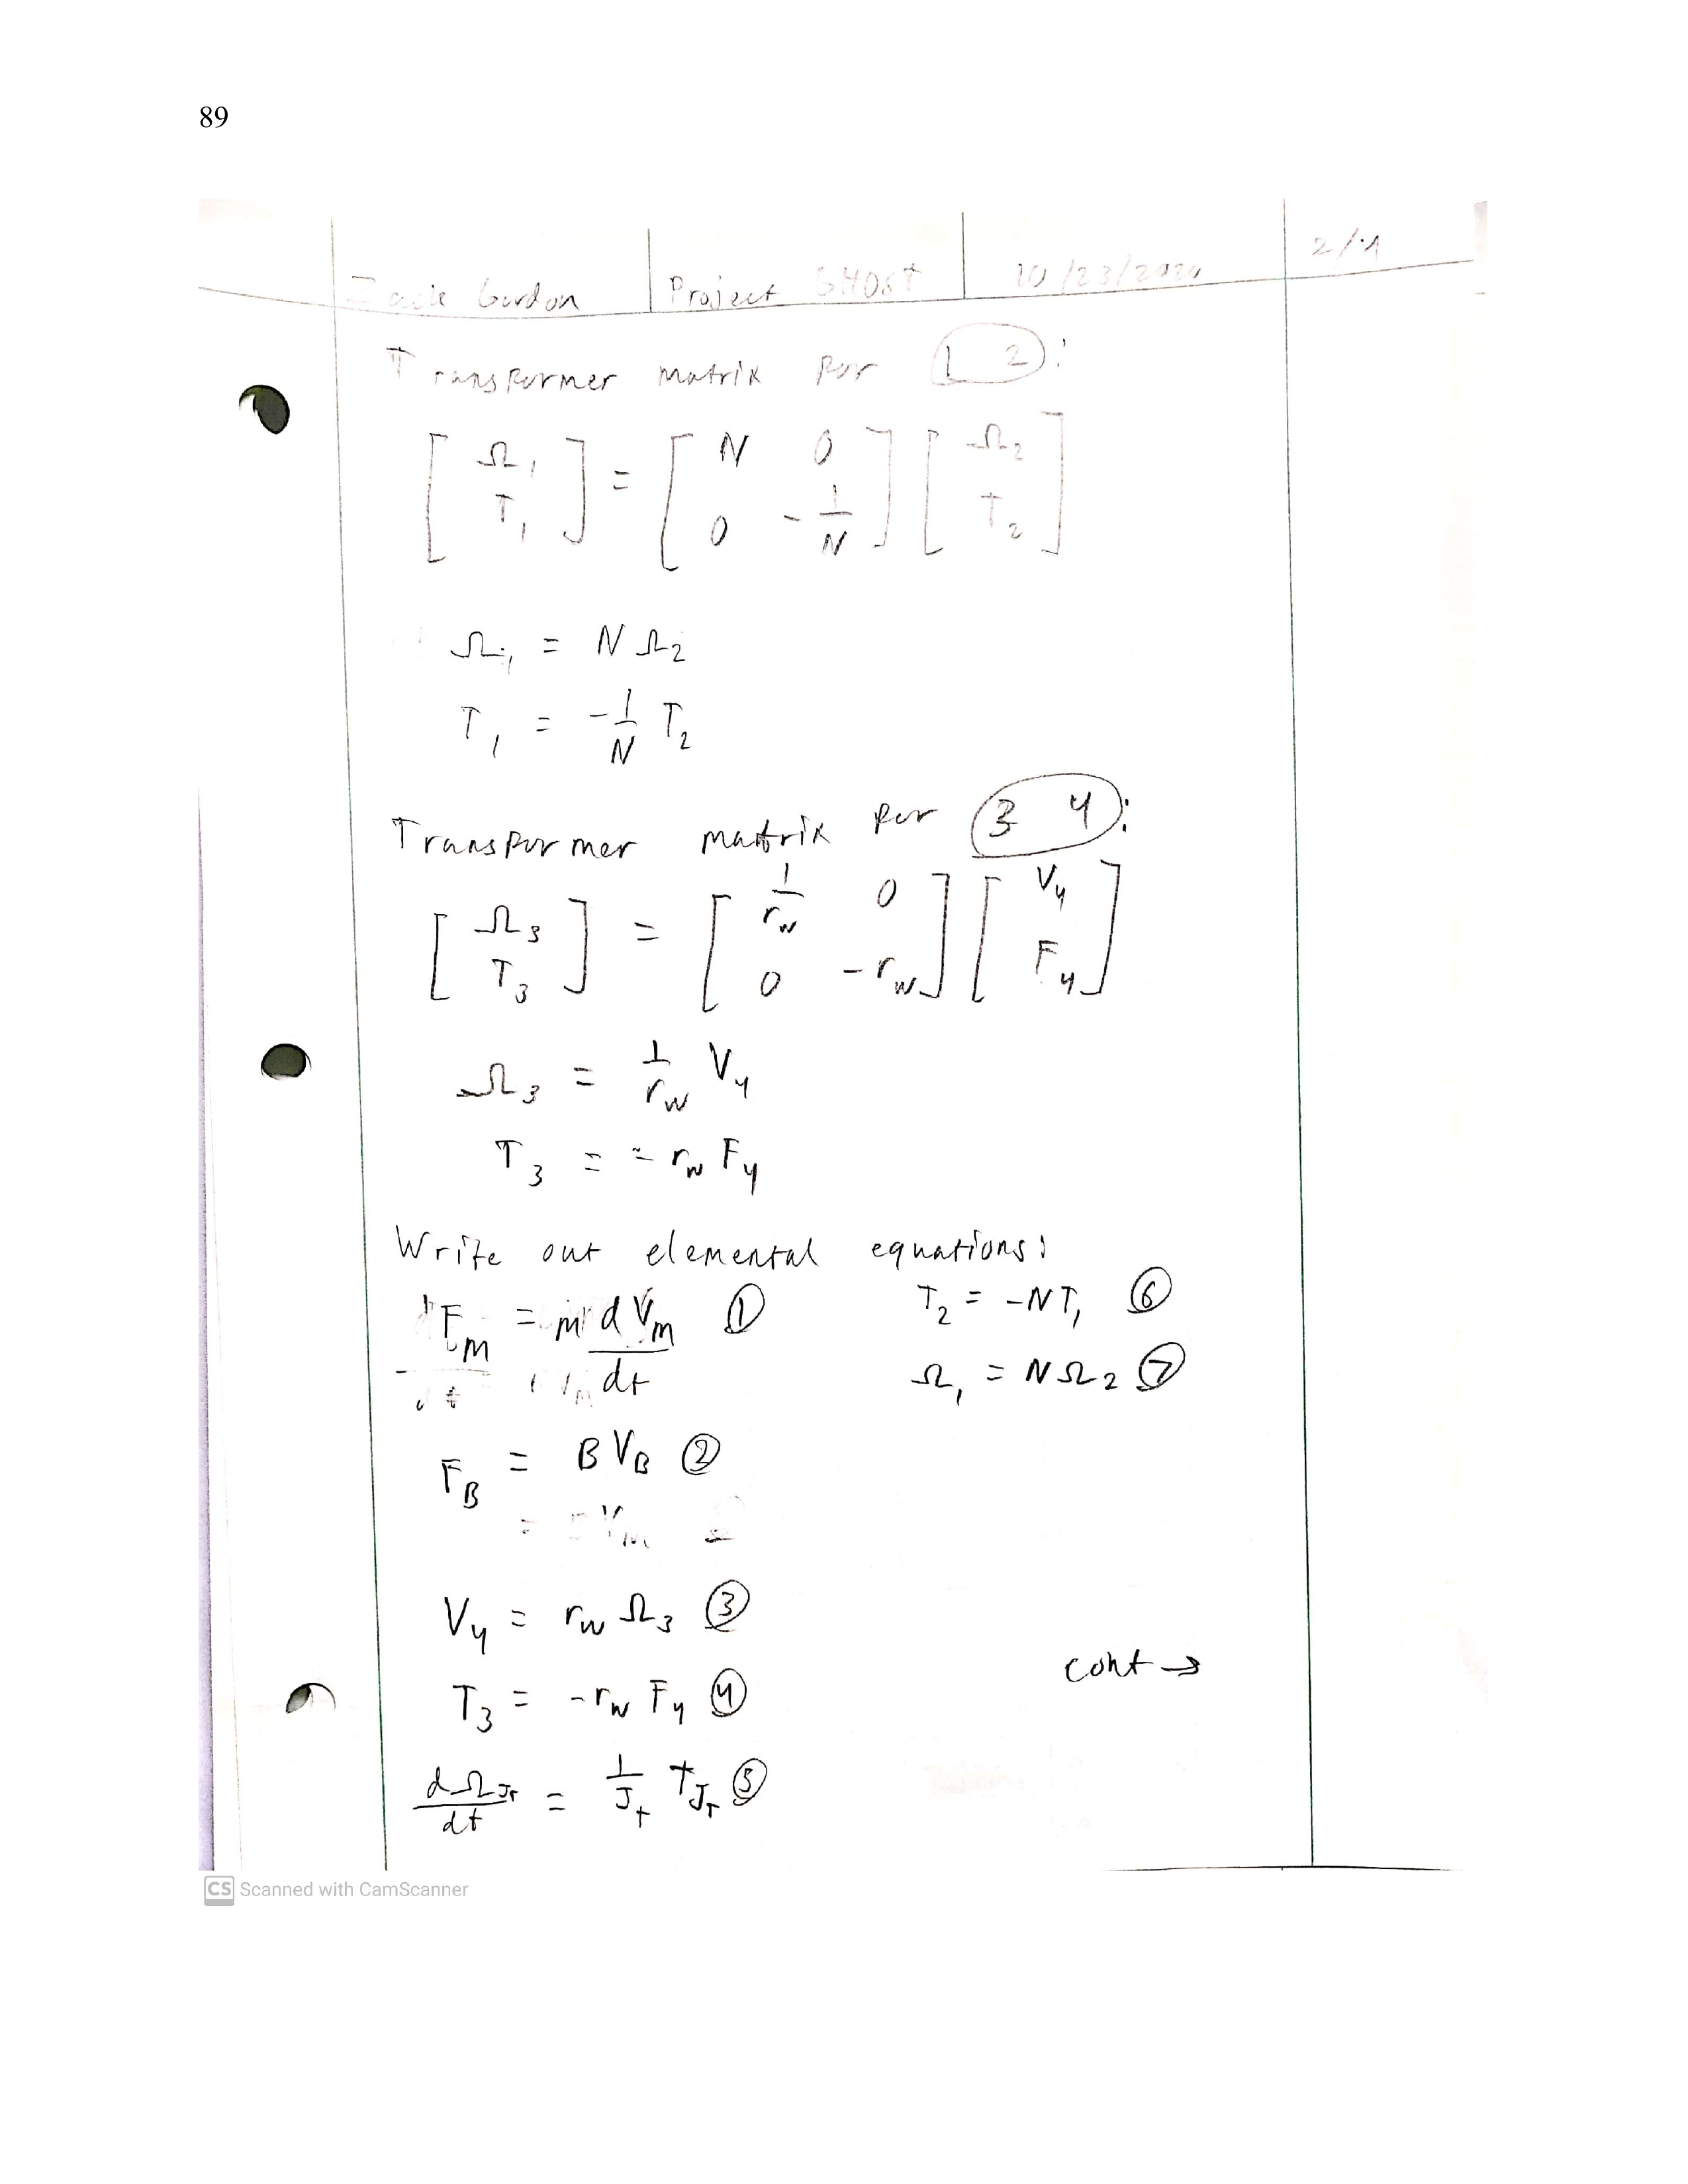 89
Gordon Project GHOST 10/23/2020 2/4
Transformer matrix for (1 2):
[Ω₁ T₁] = [N 0 0 -1/N] [Ω₂ T₂]
Ω₁ = N Ω₂
T₁ = -1/N T₂
Transformer matrix for (3 4):
[Ω₃ T₃] = [1/r_w 0 0 -r_w] [V₄ F₄]
Ω₃ = 1/r_w V₄
T₃ = -r_w F₄
Write out elemental equations:
F_m = m dV_m/dt ①
F_B = B V_B ②
V₄ = r_w Ω₃ ③
T₃ = -r_w F₄ ④
dΩ_Jτ/dt = 1/J_τ T_Jτ ⑤
T₂ = -NT₁ ⑥
Ω₁ = NΩ₂ ⑦
cont →
CS Scanned with CamScanner